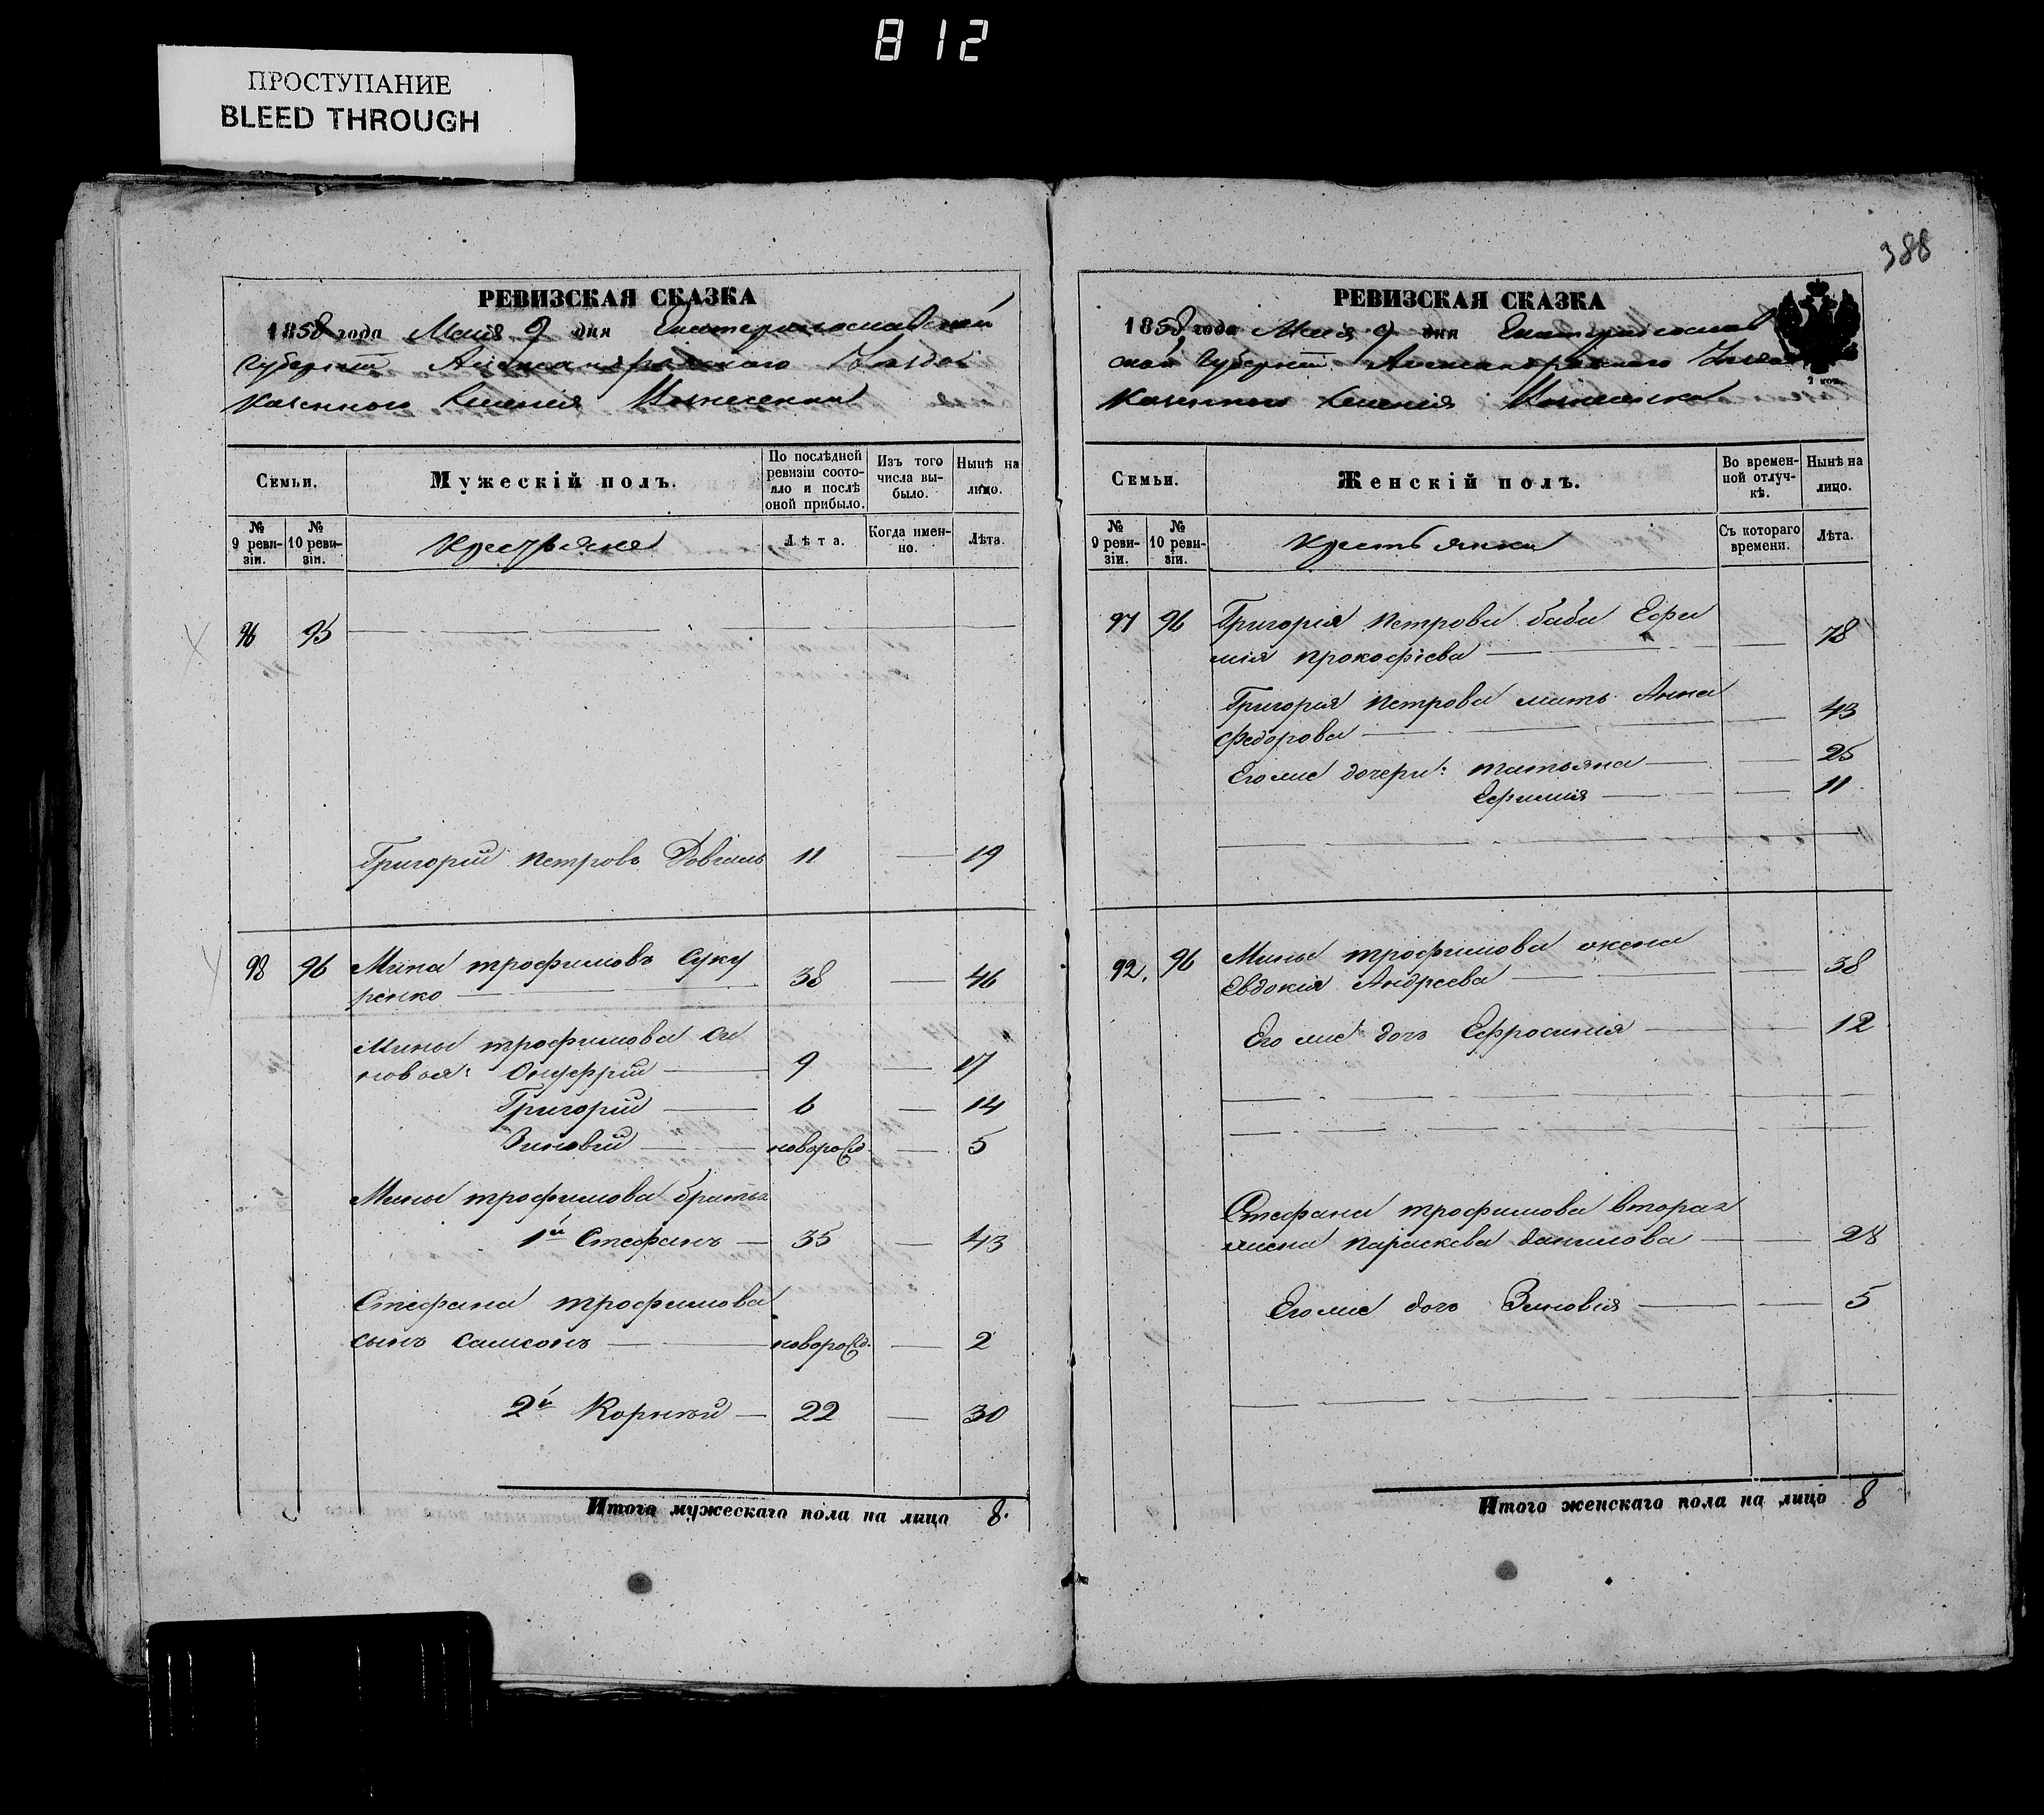 812
ПРОСТУПАНИЕ
BLEED THROUGH
388
РЕВИЗСКАЯ СКАЗКА
1858 года Маія 9 дня Екатеринославской
Губерніи Александровскаго Уѣзда
Казеннаго Селенія Вознесенки
Семьи.
Мужескій полъ.
По послѣдней ревизіи состо-
яло и послѣ
оной прибыло.
Изъ того
числа вы-
было.
Нынѣ на
лицо.
№
9 реви-
зіи.
№
10 реви-
зіи.
Крестьяне
Лѣта.
Когда имен-
но.
Лѣта.
96 95
Григорій Петровъ Довгаль 11 19
98 96 Мина Трофимовъ Суку
ренко 38 46
Мины Трофимова сы
новья: Онуфрій 9 17
Григорій 6 14
Зиновій новорожд. 5
Мины Трофимова братья
1й Стефанъ 35 43
Стефана Трофимова
сынъ Самсонъ новорожд. 2
2й Корнѣй 22 30
Итого мужескаго пола на лицо 8.
РЕВИЗСКАЯ СКАЗКА
1858 года Маія 9 дня Екатеринослав
ской Губерніи Александровскаго Уѣзда
Казеннаго Селенія Вознесенки
2 коп.
Семьи.
Женскій полъ.
Во времен-
ной отлуч-
кѣ.
Нынѣ на
лицо.
№
9 реви-
зіи.
№
10 реви-
зіи.
Крестьянки
Съ котораго
времени.
Лѣта.
97 96 Григорія Петрова баба Ефи
мія Прокофіева 78
Григорія Петрова мать Анна
Федорова 43
Его же дочери: Татьяна 25
Ефимія 11
92. 96 Мины Трофимова жена
Евдокія Андреева 38
Его же дочь Ефросинія 12
Стефана Трофимова вторая
жена Параскева Данилова 28
Его же дочь Зиновія 5
Итого женскаго пола на лицо 8